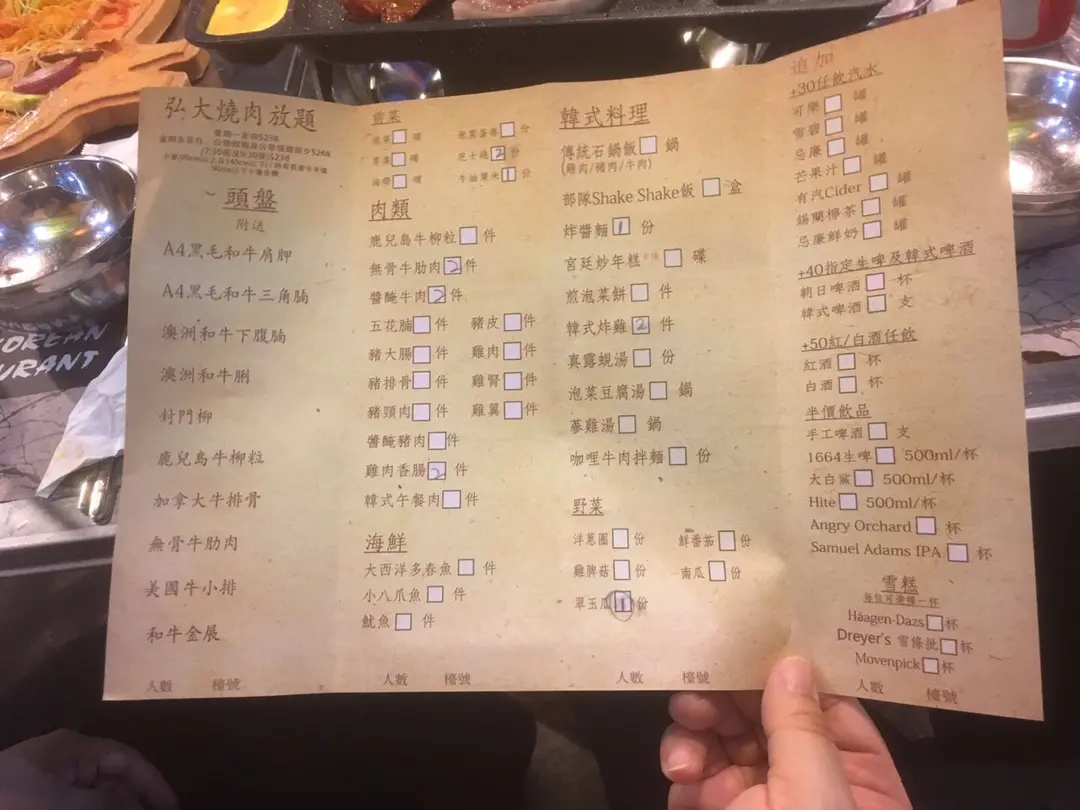 弘大燒肉放題
星期一至四$238
頭盤
附送
A4黑毛和牛肩胛
A4黑毛和牛三角腩
澳洲和牛下腹腩
澳洲和牛脷
封門柳
鹿兒島牛柳粒
加拿大牛排骨
無骨牛肋肉
美國牛小排
和牛金展
人數 檯號
前菜
泡菜 碟 份
芽菜 碟 芝士燒 2 份
海帶 碟 牛油粟米 1 份
肉類
鹿兒島牛柳粒 件
無骨牛肋肉 2 件
醬醃牛肉 2 件
五花腩 件 豬皮 件
豬大腸 件 雞肉 件
豬排骨 件 雞腎 件
豬頸肉 件 雞翼 件
醬醃豬肉 件
雞肉香腸 2 件
韓式午餐肉 件
海鮮
大西洋多春魚 件
小八爪魚 件
魷魚 件
人數 檯號
韓式料理
傳統石鍋飯 鍋
(雞肉/豬肉/牛肉)
部隊Shake Shake飯 盒
炸醬麵 1 份
宮廷炒年糕 碟
煎泡菜餅 件
韓式炸雞 2 件
真露蜆湯 份
泡菜豆腐湯 鍋
蔘雞湯 鍋
咖哩牛肉拌麵 份
野菜
洋蔥圈 份 鮮番茄 份
雞脾菇 份 南瓜 份
翠玉瓜 1 份
人數 檯號
追加
+30任飲汽水
可樂 罐
雪碧 罐
忌廉 罐
芒果汁 罐
有汽Cider 罐
錫蘭檸茶 罐
忌廉鮮奶 罐
+40指定生啤及韓式啤酒
朝日啤酒 杯
韓式啤酒 支
+50紅/白酒任飲
紅酒 杯
白酒 杯
半價飲品
手工啤酒 支
1664生啤 500ml/杯
大白鯊 500ml/杯
Hite 500ml/杯
Angry Orchard 杯
Samuel Adams IPA 杯
雪糕
每位可選擇一杯
Häagen-Dazs 杯
Dreyer's 雪條批 杯
Movenpick 杯
人數 檯號
KOREAN
URANT